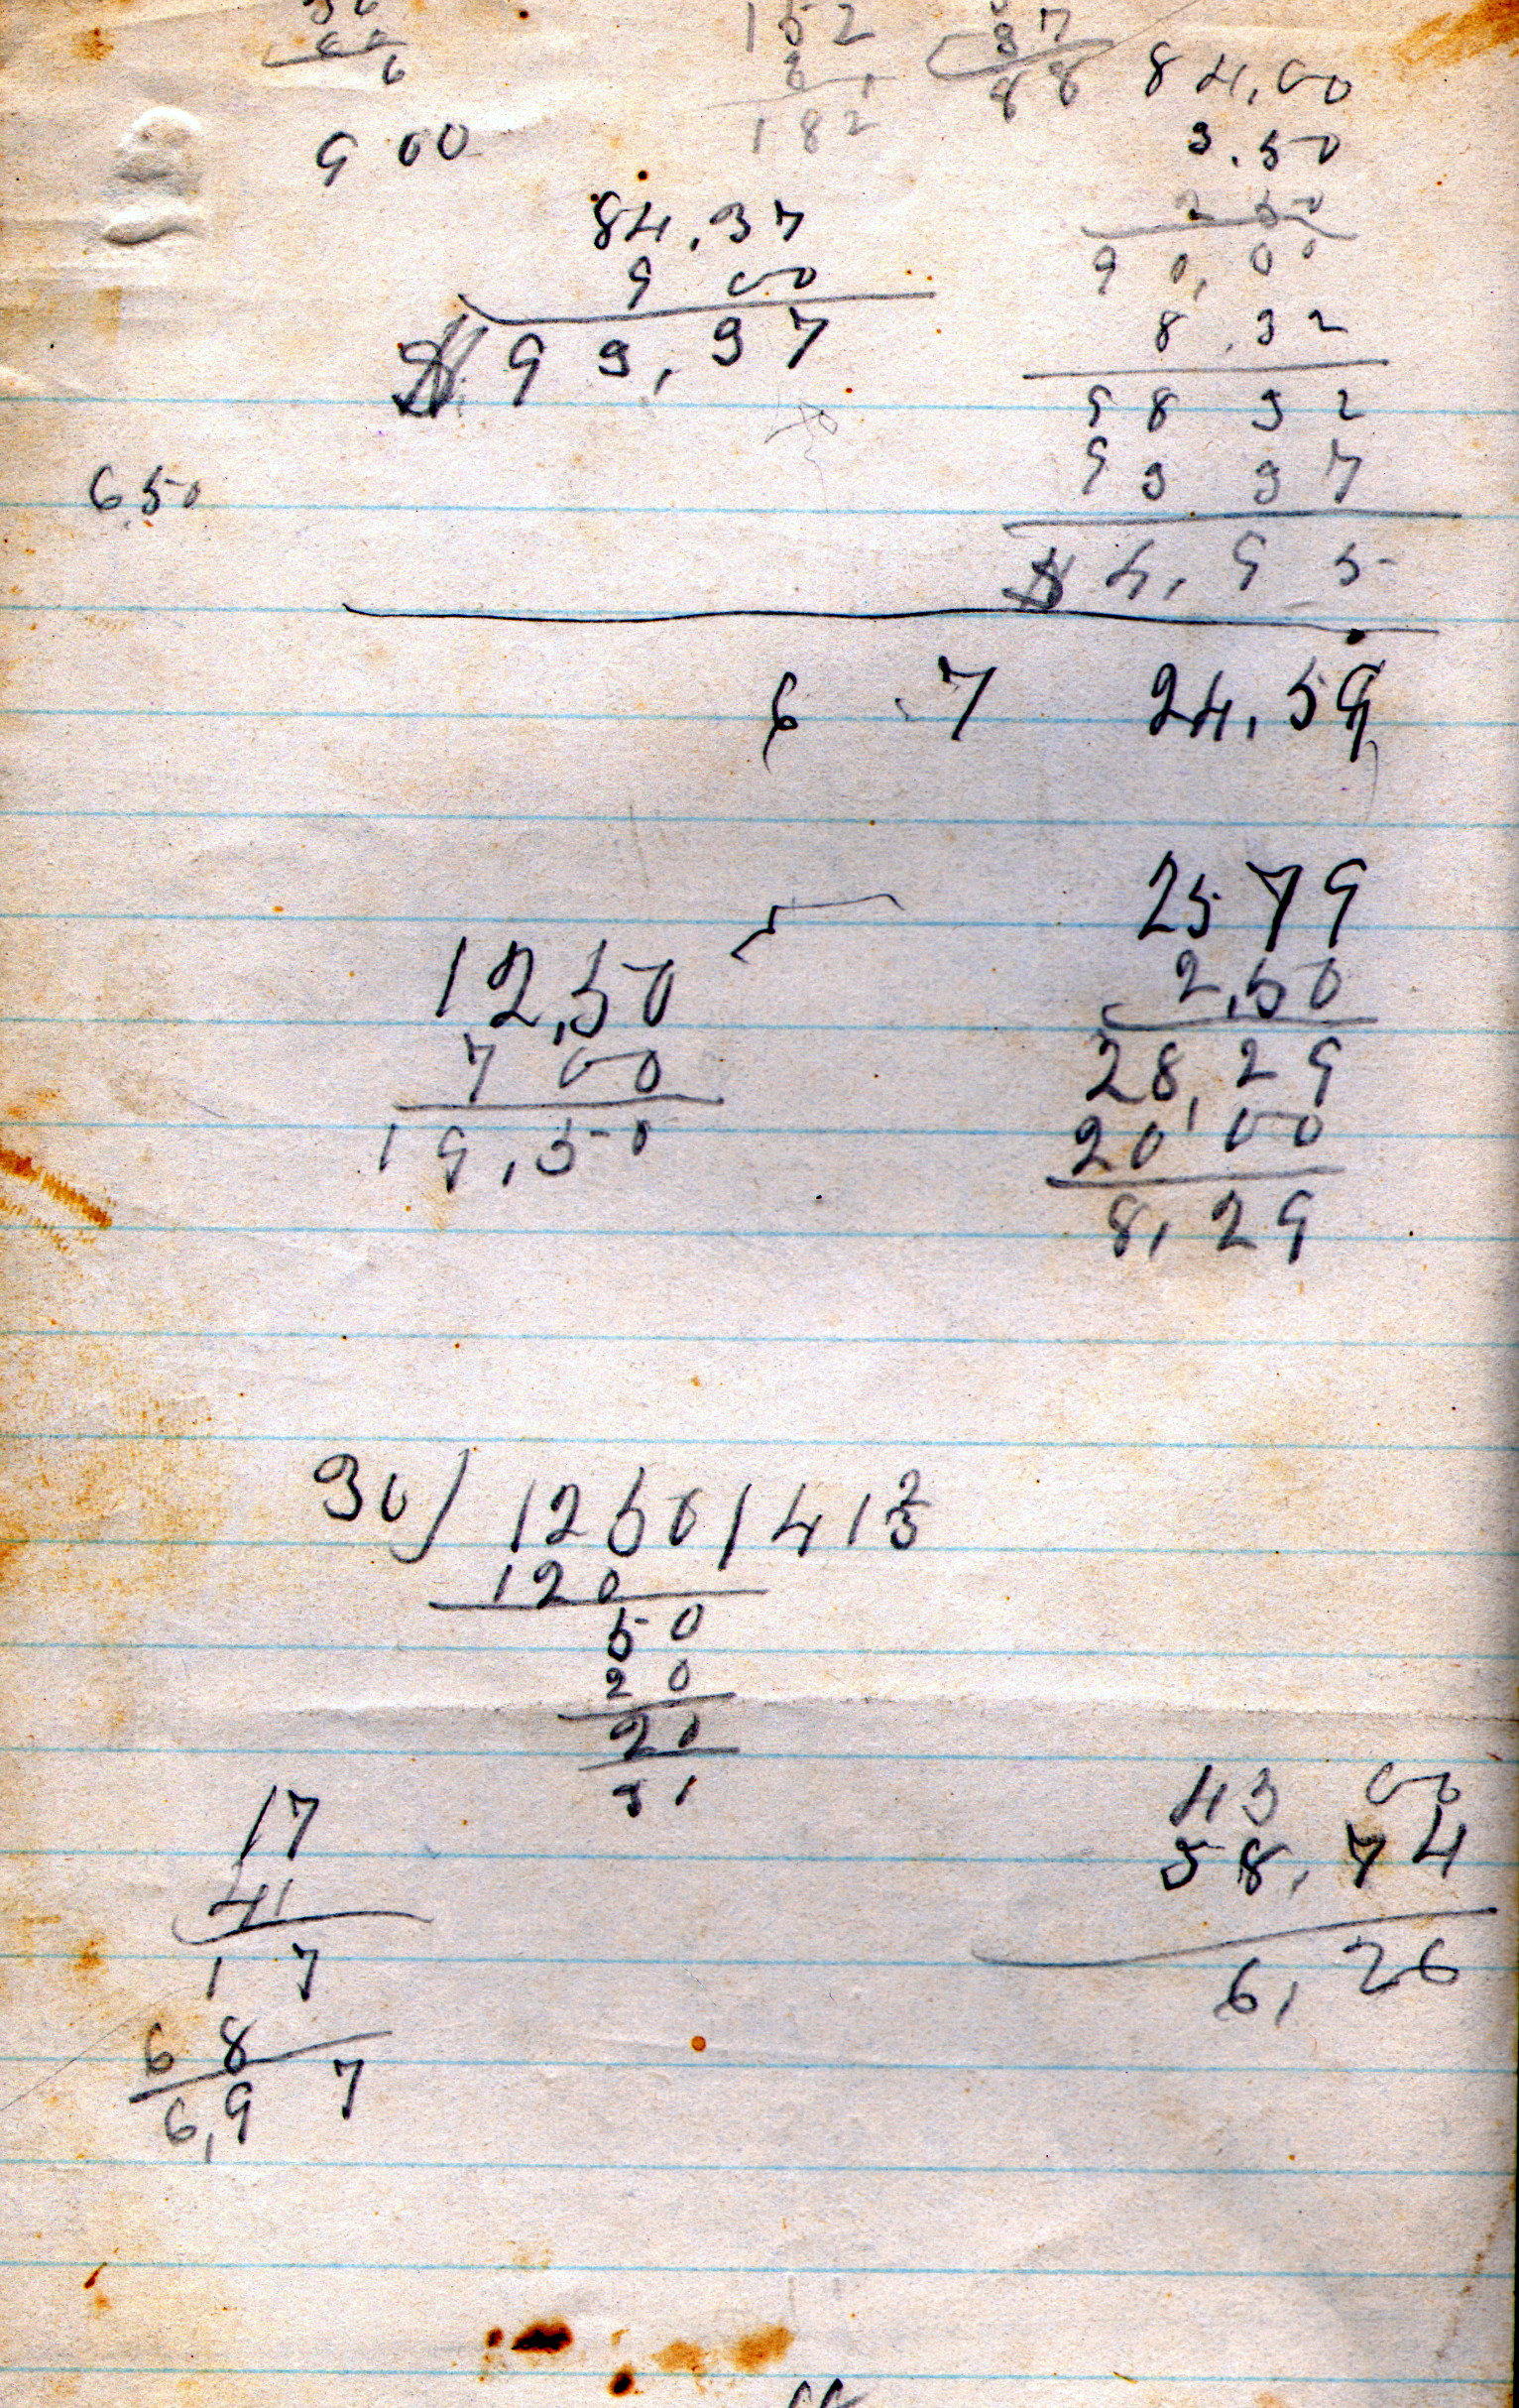 6
900
84.37
9 00
93,37
650
152
182
37
88
84,00
3.50
2 50
90,00
8.32
98 32
93 37
$4,95
6 7 24,59
12,50
7 00
19,50
2579
2,50
28,29
20,00
8,29
30) 1250 / 41 2/3
120
50
20
20
31
17
41
17
68
6,97
43 00
58,74
6,26